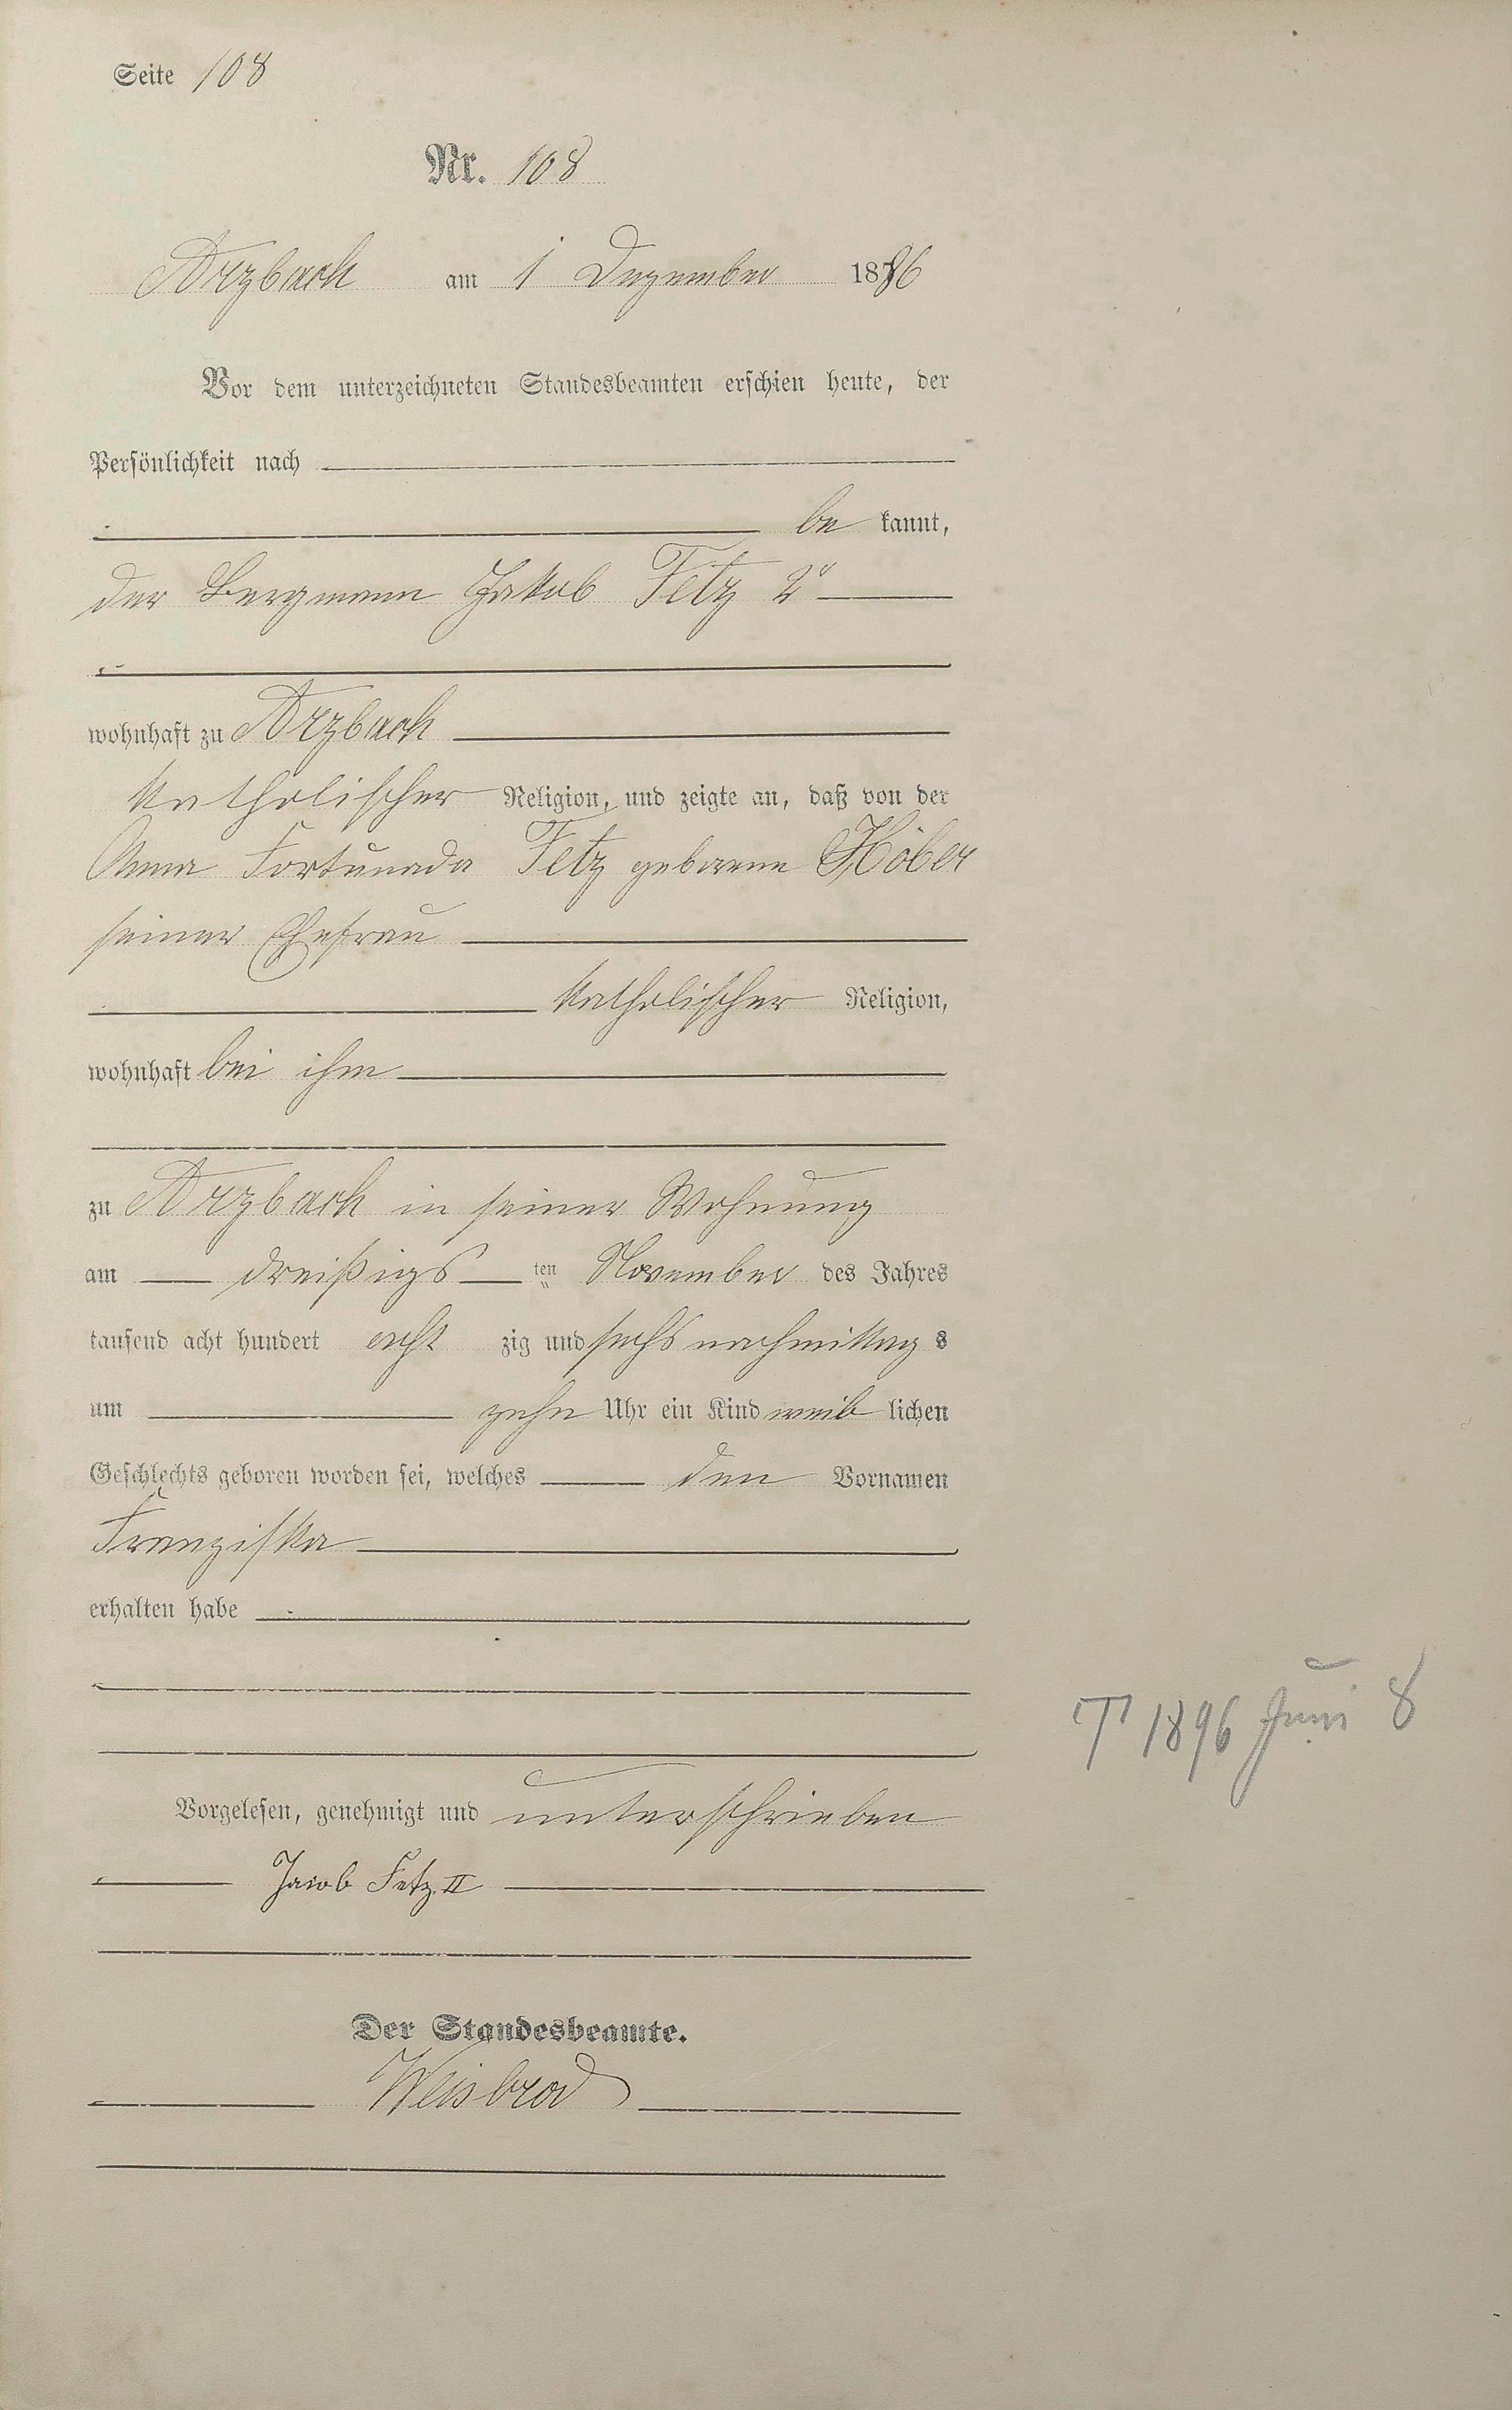 Seite 108
Nr. 108
Arzbach am 1 Dezember 1886
Vor dem unterzeichneten Standesbeamten erschien heute, der
Persönlichkeit nach
be kannt,
der Bergmann Jakob Fetz 2r
wohnhaft zu Arzbach
katholischer Religion, und zeigte an, daß von der
Anna Fortunada Fetz geborene Höber
seiner Ehefrau
katholischer Religion,
wohnhaft bei ihm
zu Arzbach in seiner Wohnung
am dreißigs ten November des Jahres
tausend acht hundert acht zig und sechs nachmittag s
um zehn Uhr ein Kind weib lichen
Geschlechts geboren worden sei, welches den Vornamen
Franziska
erhalten habe
† 1896 Juni 8
Vorgelesen, genehmigt und unterschrieben
Jacob Fetz II
Der Standesbeamte.
Weisbrod